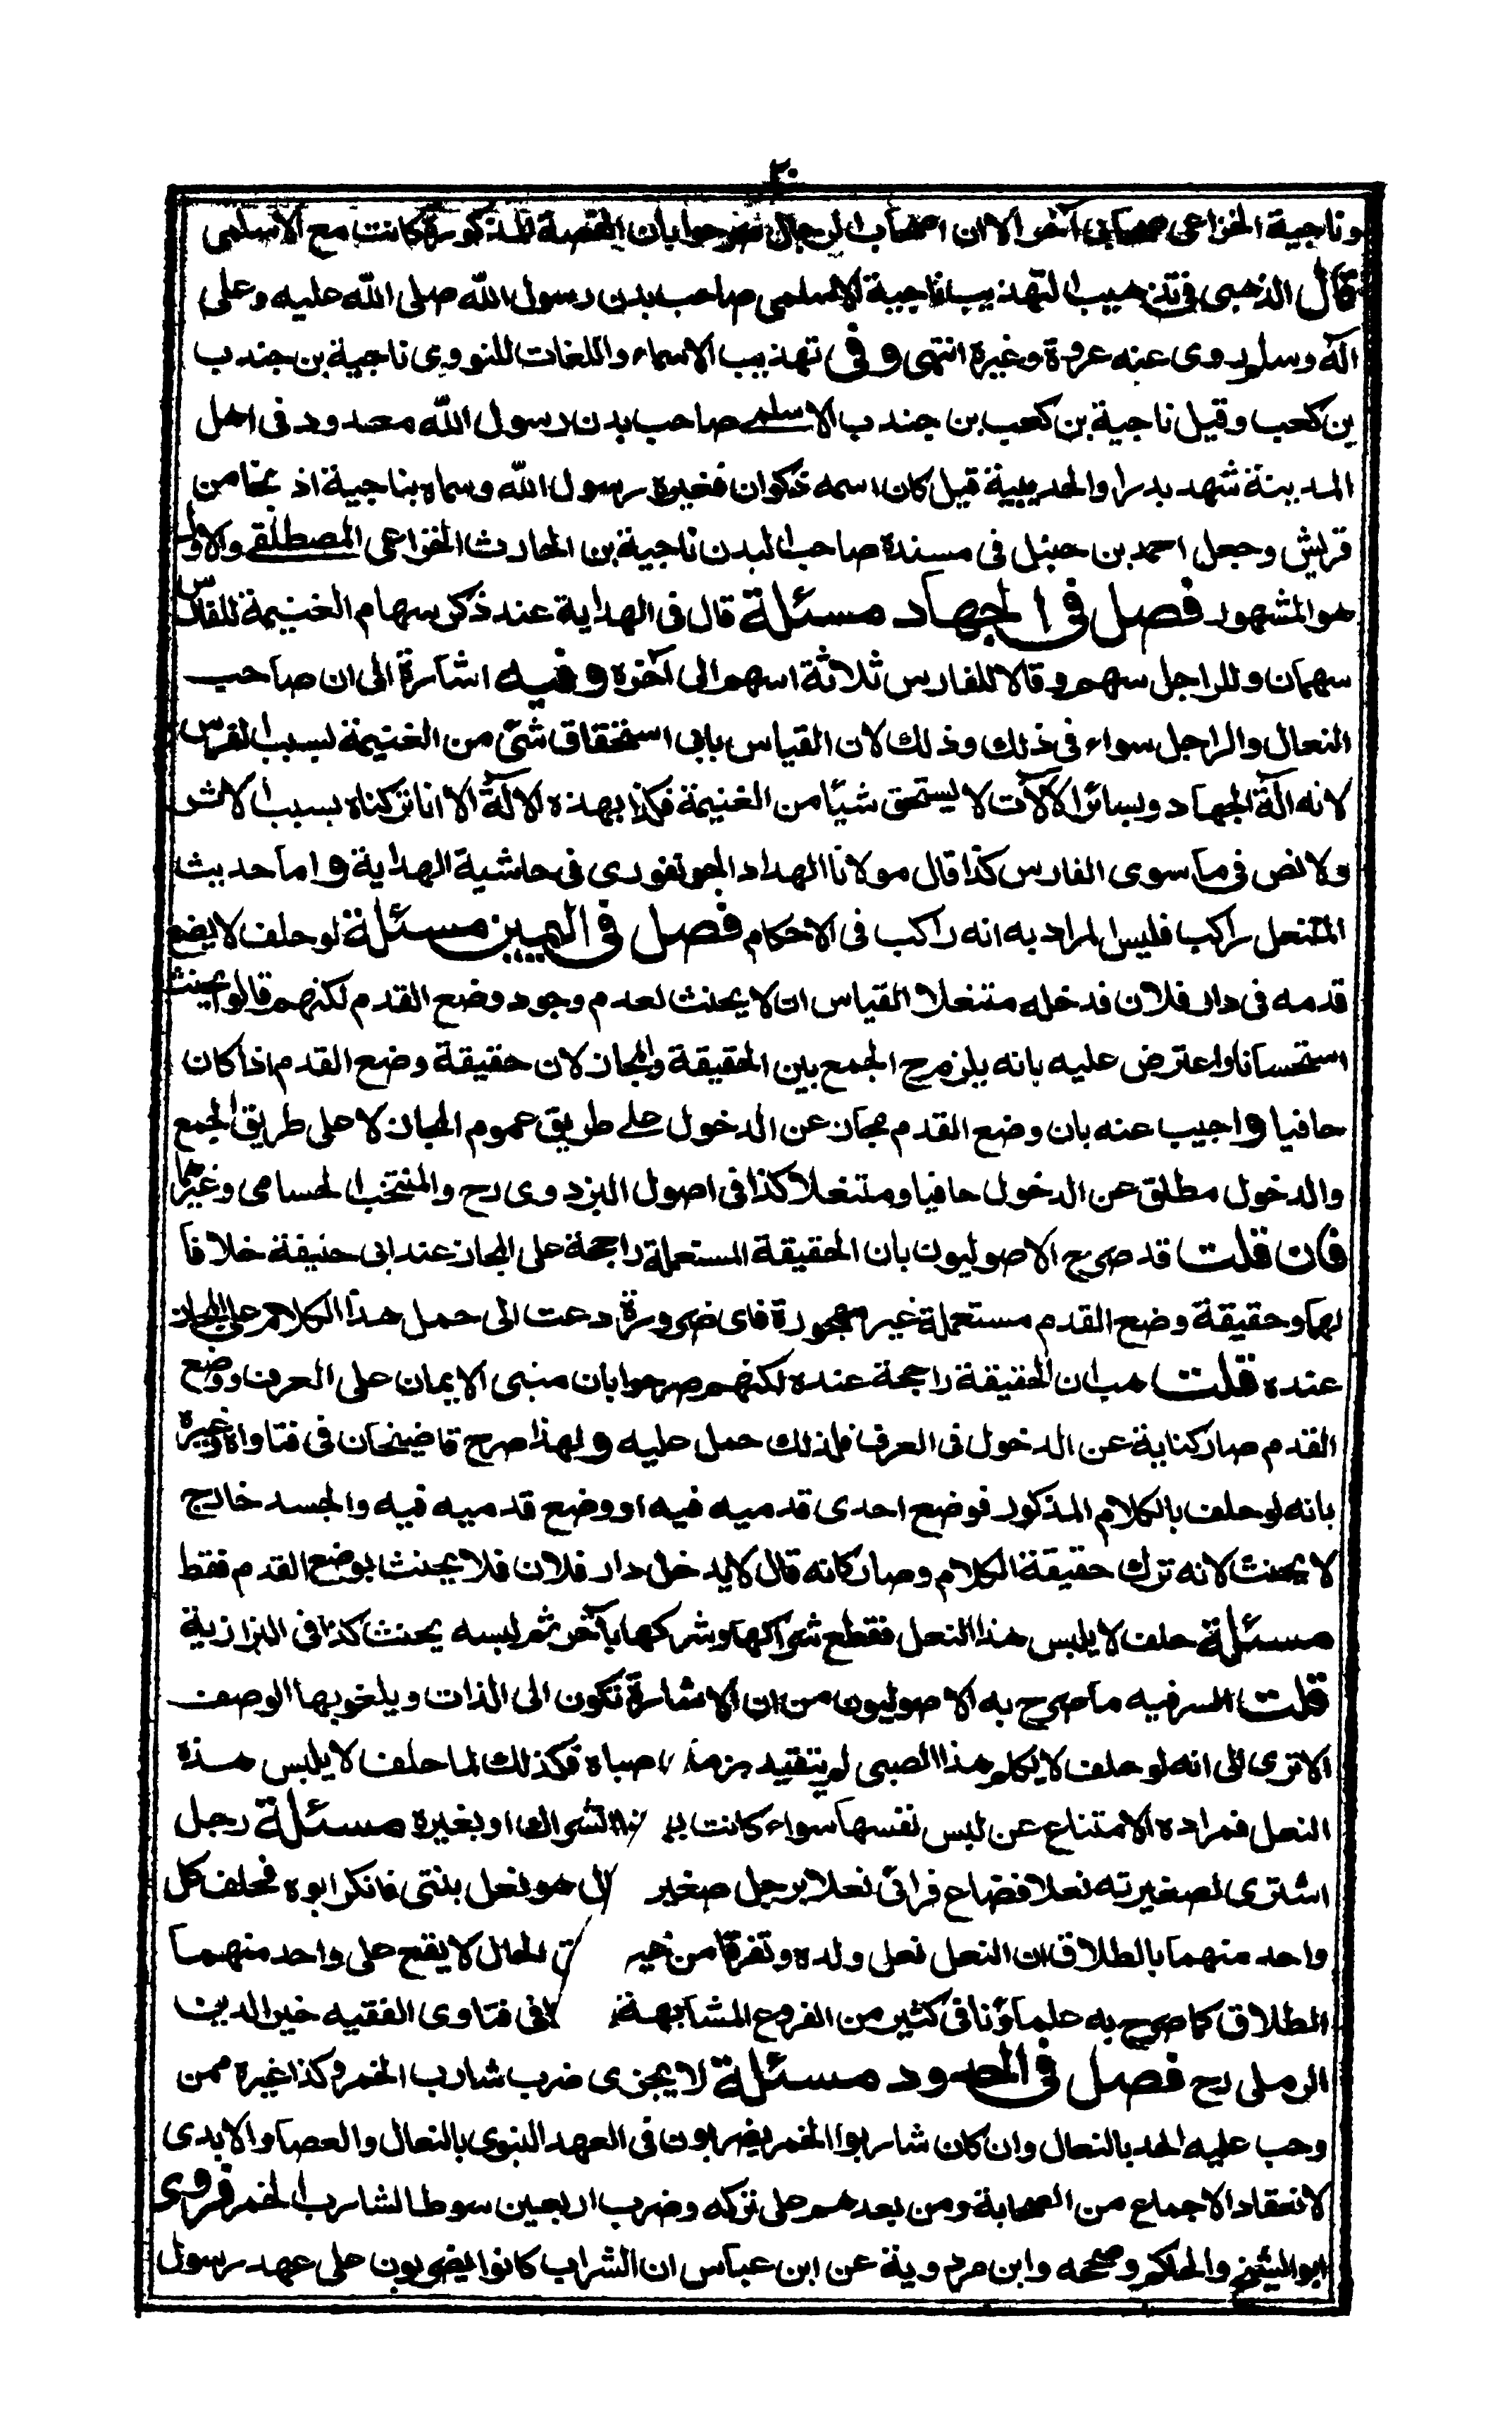 ٢٠
وناجية الخزاعي صحابي آخر الا ان اصحاب الرجال صرحوا بان القصة المذكورة كانت مع الاسلمي
قال الذهبي في تذهيب التهذيب ناجية الاسلمي صاحب بدن رسول الله صلى الله عليه وعلى
آله وسلم روى عنه عروة وغيره انتهى وفي تهذيب الاسماء واللغات للنووي ناجية بن جندب
بن كعب وقيل ناجية بن كعب بن جندب الاسلمي صاحب بدن رسول الله معدود في اهل
المدينة شهد بدرا والحديبية قيل كان اسمه ذكوان فغيره رسول الله وسماه بناجية اذ نجا من
قريش وجعل احمد بن حنبل في مسنده صاحب البدن ناجية بن الحارث الخزاعي المصطلقي والاول
هو المشهور فصل في الجهاد مسئلة قال في الهداية عند ذكر سهام الغنيمة للفارس
سهمان وللراجل سهم وقالا للفارس ثلاثة اسهم الى آخره وفيه اشارة الى ان صاحب
النعال والراجل سواء في ذلك وذلك لان القياس يابى استحقاق شئ من الغنيمة بسبب الفرس
لانه آلة الجهاد وبسائر الآلات لا يستحق شيئا من الغنيمة فكذا بهذه الآلة الا انا تركناه بسبب الاثر
ولا نص في ما سوى الفارس كذا قال مولانا الهداد الجونفوري في حاشية الهداية واما حديث
المتنعل راكب فليس المراد به انه راكب في الاحكام فصل في اليمين مسئلة لو حلف لا يضع
قدمه في دار فلان فدخله متنعلا القياس ان لا يحنث لعدم وجود وضع القدم لكنهم قالوا يحنث
استحسانا واعترض عليه بانه يلزم ح الجمع بين الحقيقة والمجاز لان حقيقة وضع القدم اذا كان
حافيا واجيب عنه بان وضع القدم مجاز عن الدخول على طريق عموم المجاز لا على طريق الجمع
والدخول مطلق عن الدخول حافيا ومتنعلا كذا في اصول البزدوي رح والمنتخب الحسامي وغيرهما
فان قلت قد صرح الاصوليون بان الحقيقة المستعملة راجحة على المجاز عند ابي حنيفة خلافا
لهما وحقيقة وضع القدم مستعملة غير مهجورة فاي ضرورة دعت الى حمل هذا الكلام على المجاز
عنده قلت هب ان الحقيقة راجحة عنده لكنهم صرحوا بان مبنى الايمان على العرف ووضع
القدم صار كناية عن الدخول في العرف فلذلك حمل عليه ولهذا صرح قاضيخان في فتاواه وغيره
بانه لو حلف بالكلام المذكور فوضع احدى قدميه فيه او وضع قدميه فيه والجسد خارج
لا يحنث لانه ترك حقيقة الكلام وصار كانه قال لا يدخل دار فلان فلا يحنث بوضع القدم فقط
مسئلة حلف لا يلبس هذا النعل فقطع شراكها وشركها بآخر ثم لبسه يحنث كذا في البزازية
قلت السر فيه ما صرح به الاصوليون من ان الاشارة تكون الى الذات ويلغو بها الوصف
الا ترى الى انه لو حلف لا يكلم هذا الصبي لم يتقيد بزمان صباه فكذلك لما حلف لا يلبس هذه
النعل فمراده الامتناع عن لبس نفسها سواء كانت الشراك او بغيره مسئلة رجل
اشترى لصغيرته نعلا فضاع فرائى نعلا برجل صغير هو نعل بنتي فانكر ابوه فحلف كل
واحد منهما بالطلاق ان النعل نعل ولده وتفرقا من غير الحال لا يقع على واحد منهما
الطلاق كما صرح به علماؤنا في كثير من الفروع المشابهة في فتاوى الفقيه خير الدين
الرملي رح فصل في الحدود مسئلة لا يجزى ضرب شارب الخمر وكذا غيره ممن
وجب عليه الحد بالنعال وان كان شاربوا الخمر يضربون في العهد النبوي بالنعال والعصا والايدي
لانعقاد الاجماع من الصحابة ومن بعدهم على تركه وضرب اربعين سوطا لشارب الخمر فروى
ابو الشيخ والحاكم وصححه وابن مردوية عن ابن عباس ان الشراب كانوا يضربون على عهد رسول